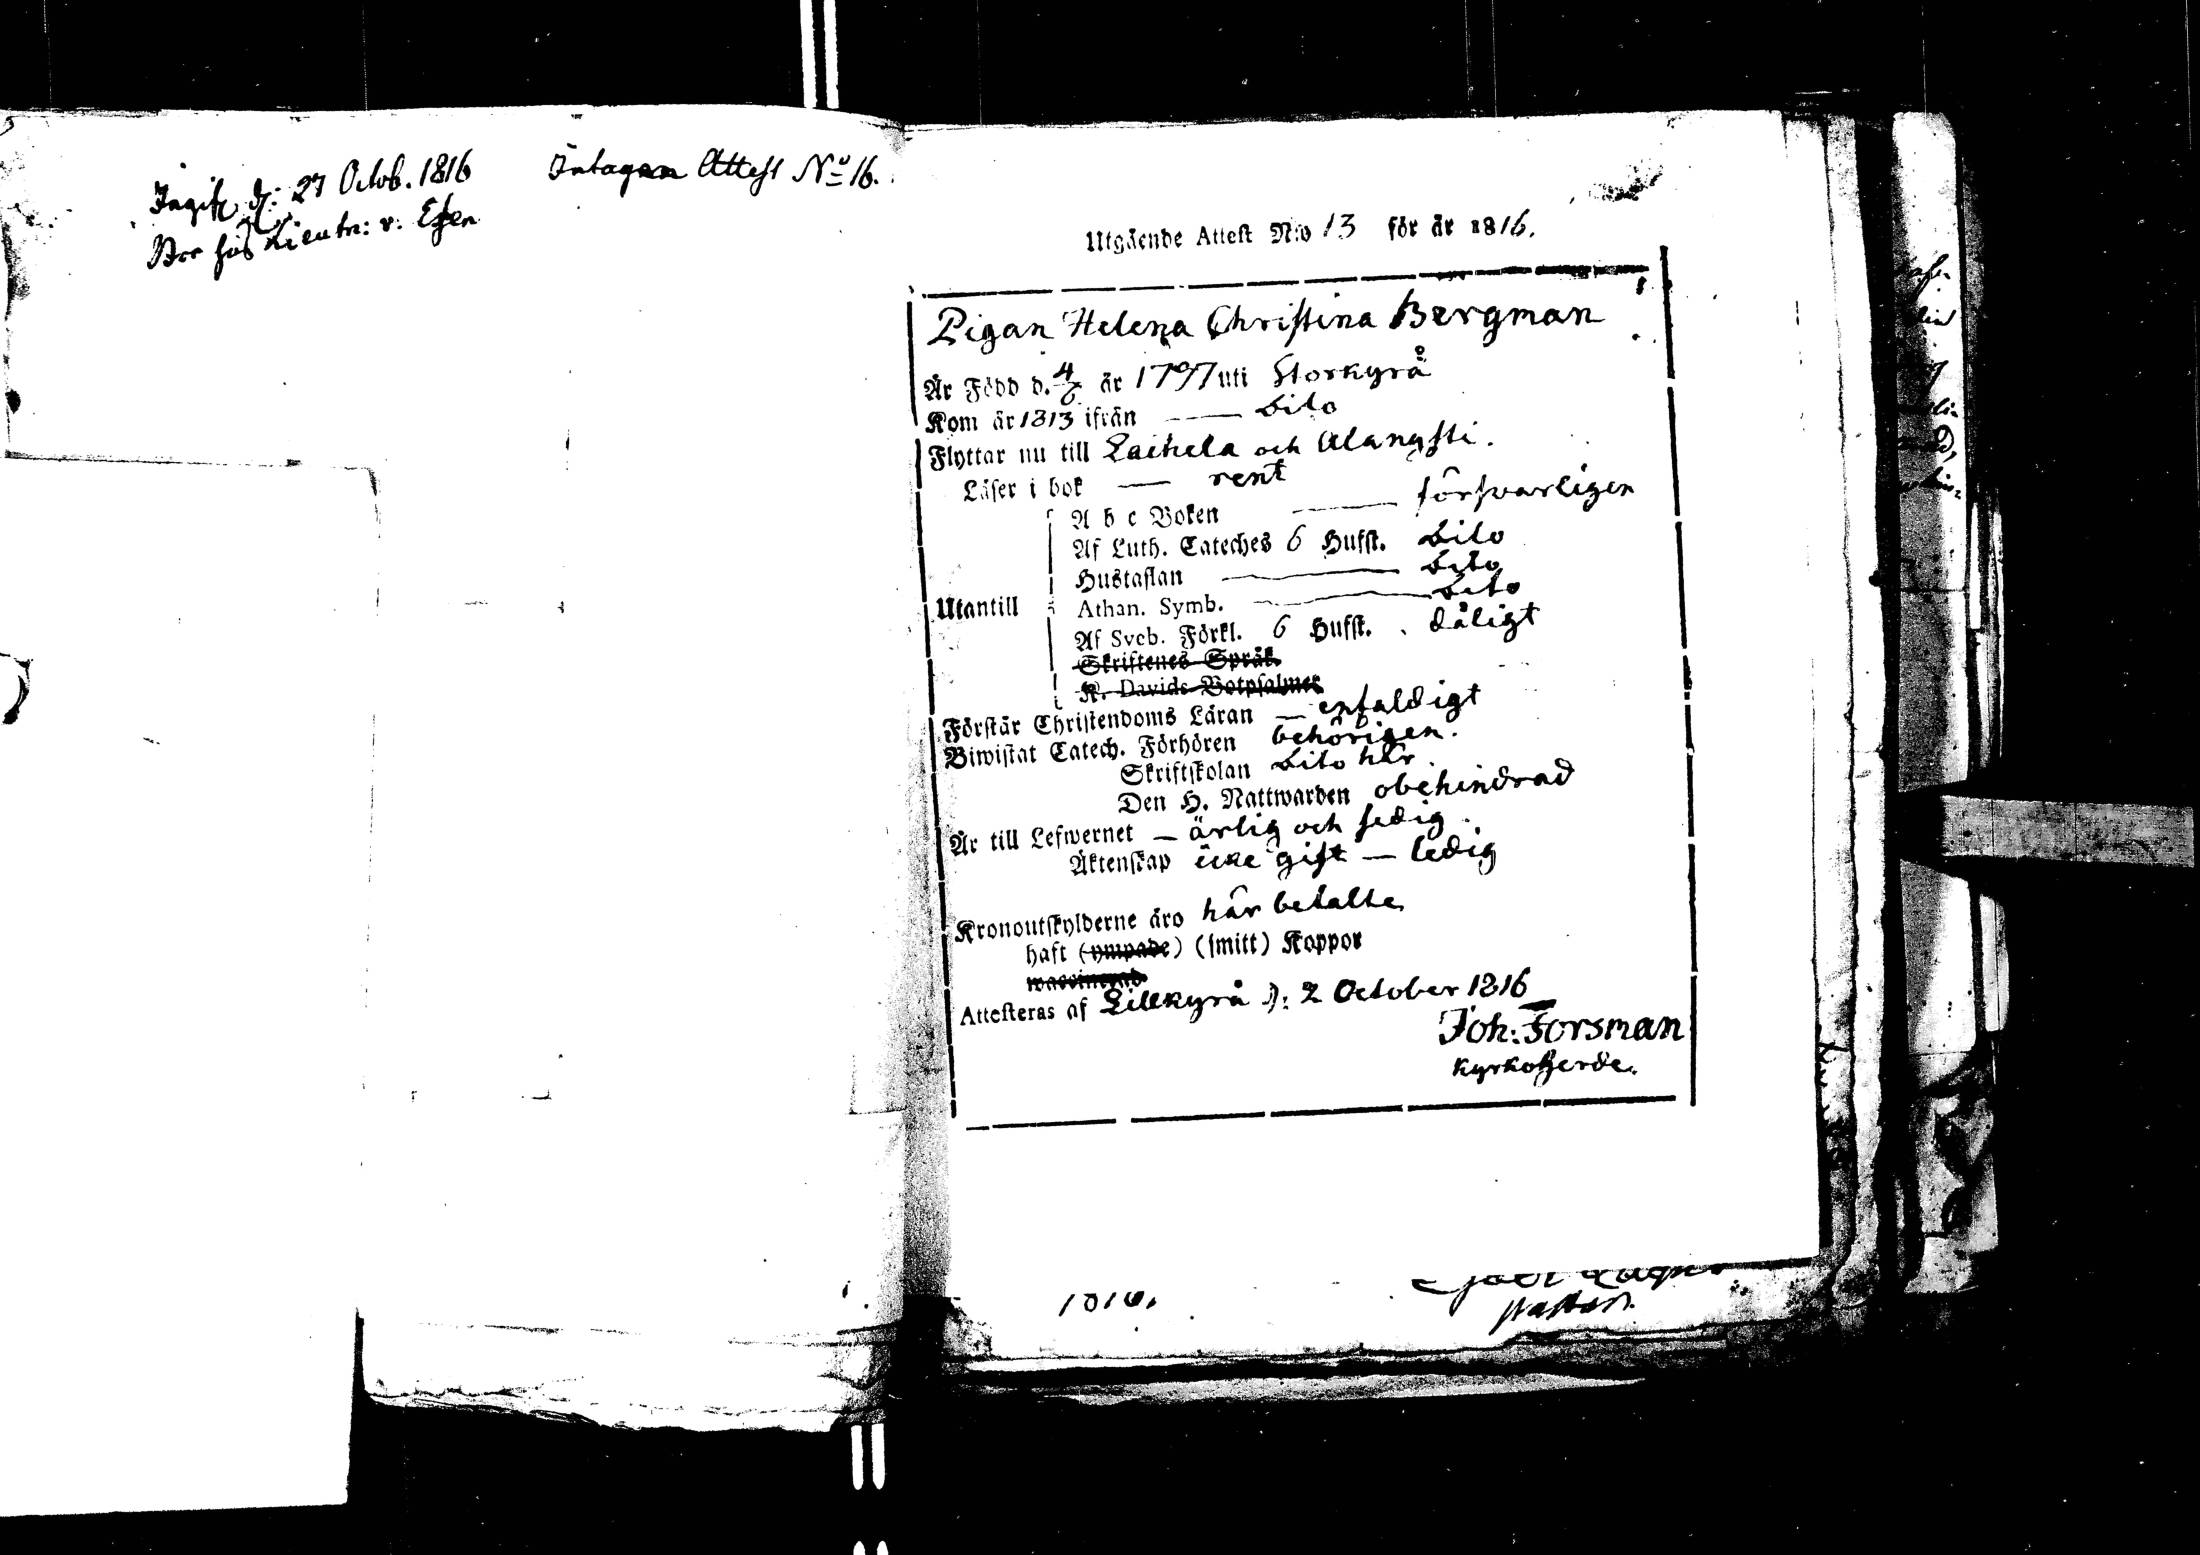 Ingift d: 27 Octob. 1816
Bor hos Lieutn: v. Essen
Intagen Attest No 16.
Utgående Attest N:o 13 för år 1816.
Pigan Helena Christina Bergman
Är Född d. 4/6 år 1797 uti Storkyrå
Kom år 1813 ifrån — dito
Flyttar nu till Laihela och Alangsti.
Läser i bok — rent
A b c Boken — försvarligen
Af Luth. Cateches 6 Hufst. dito
Hustaflan — dito
Utantill
Athan. Symb. — dito
Af Sveb. Förkl. 6 Hufst. dåligt
Skriftenes Språk.
K. Davids Botpsalmer
Förstår Christendoms Läran — enfaldigt
Biwistat Catech. Förhören behörigen.
Skriftskolan dito här.
Den H. Nattwarden obehindrad
Är till Lefwernet — ärlig och sedig.
Äktenskap icke gift — ledig
Kronoutskylderne äro här betalte
haft (ympade) (smitt) Koppor
waccinerad
Attesteras af Lillkyrå d: 2 October 1816
Joh: Forsman
Kyrkoherde.
1816.